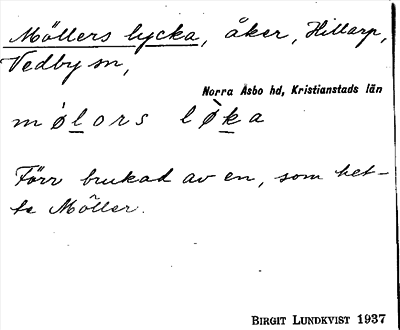 Möllers lycka, åker, Hillarp,
Vedby sn,
Norra Åsbo hd, Kristianstads län
mølors løka
Förr brukad av en, som het-
te Möller.
BIRGIT LUNDKVIST 1937